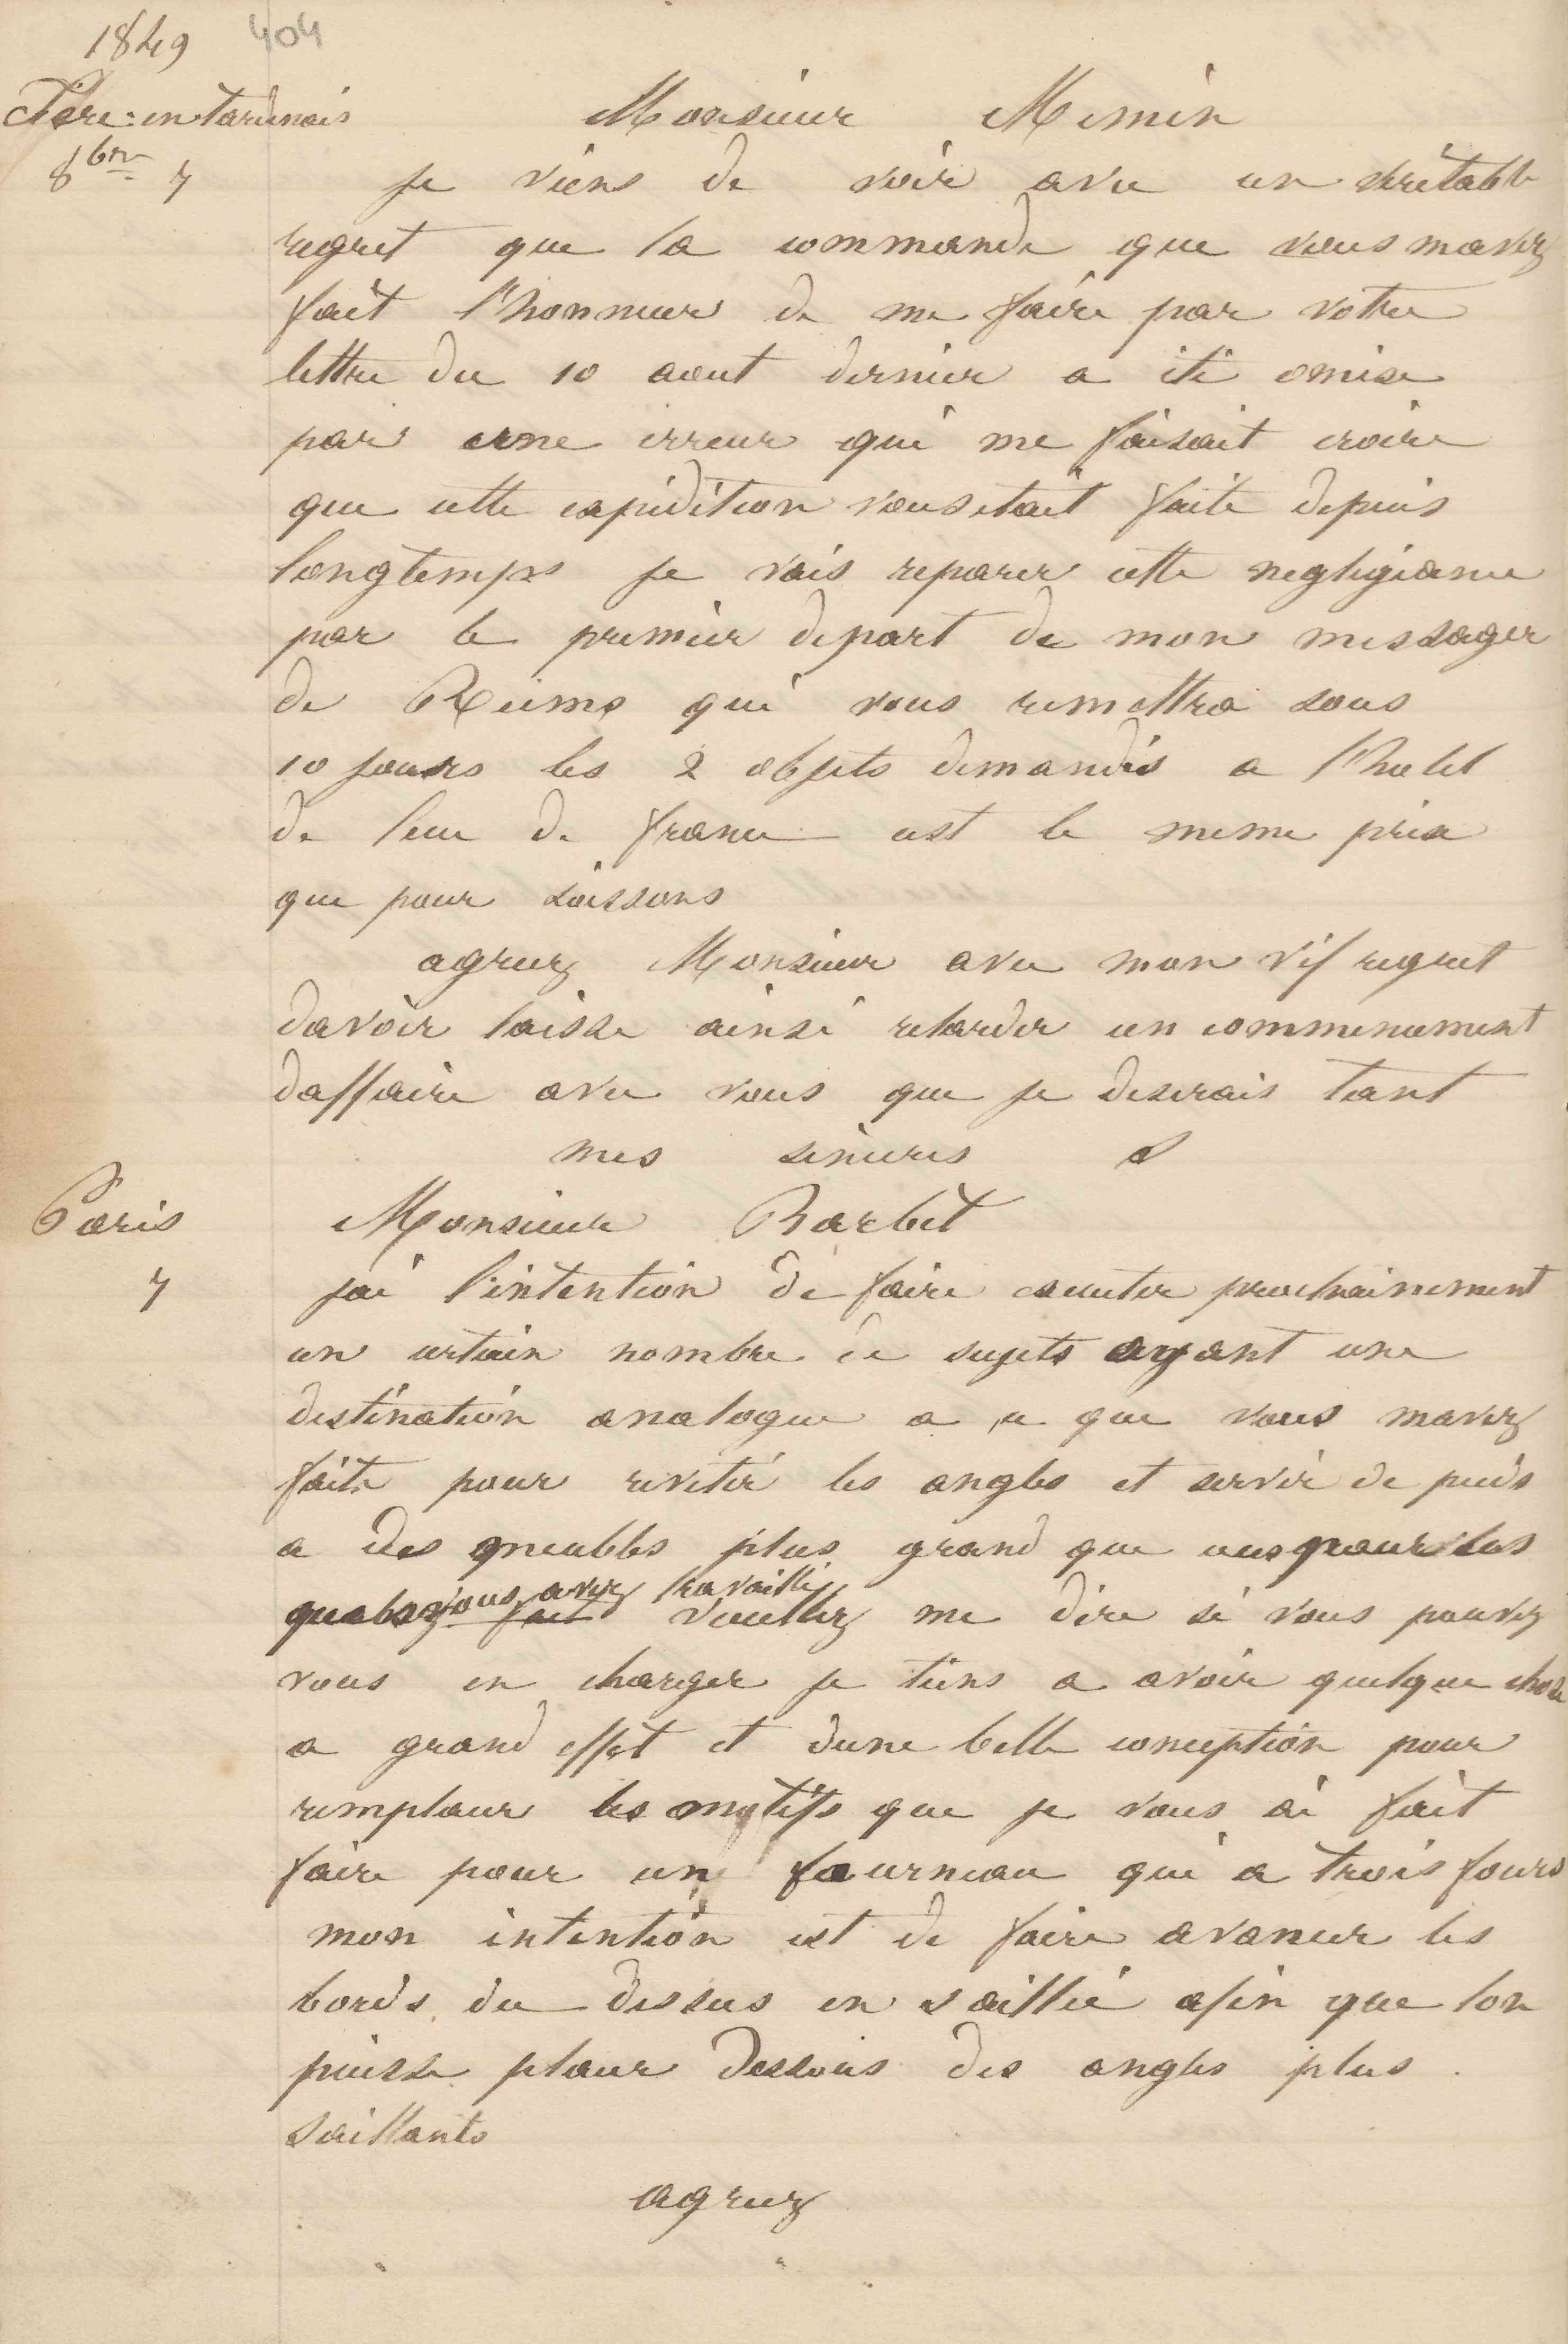 1849 404
Fère-en tardenois
8bre 7
Monsieur Memin
je viens de voir avec un veritable
regret que la commande que vous mavez
fait l'honneur de me faire par votre
lettre du 10 aout dernier a été omise
par une erreur qui me faisait croire
que cette expédition vous etait faite depuis
longtemps je vais reparer cette negligeance
par le premier depart de mon messager
de Reims qui vous remettra sous
10 jours les 2 objets demandés a l'hotel
de leu de france cest le meme prix
que pour soissons
agreez Monsieur avec mon vif regret
davoir laisse ainsi retarder un commencement
daffaire avec vous que je deserais tant
mes sinceres S
Paris
7
Monsieur Barbet
jai l'intention de faire executer prochainement
un certain nombre de sujets ayant une
destination analogue a ce que vous mavez
faite pour revetir les angles et servir de pieds
a des meubles plus grand que ceux pour les
quels vous avez travaillé
fait veuillez me dire si vous pouvez
vous en charger je tiens a avoir quelque chose
a grand effet et dune belle conception pour
remplacer les motifs que je vous ai fait
faire pour un fourneau qui a trois fours
mon intention est de faire avancer les
bords du dessus en saillie afin que lon
puisse placer dessous des angles plus
saillants
agreez